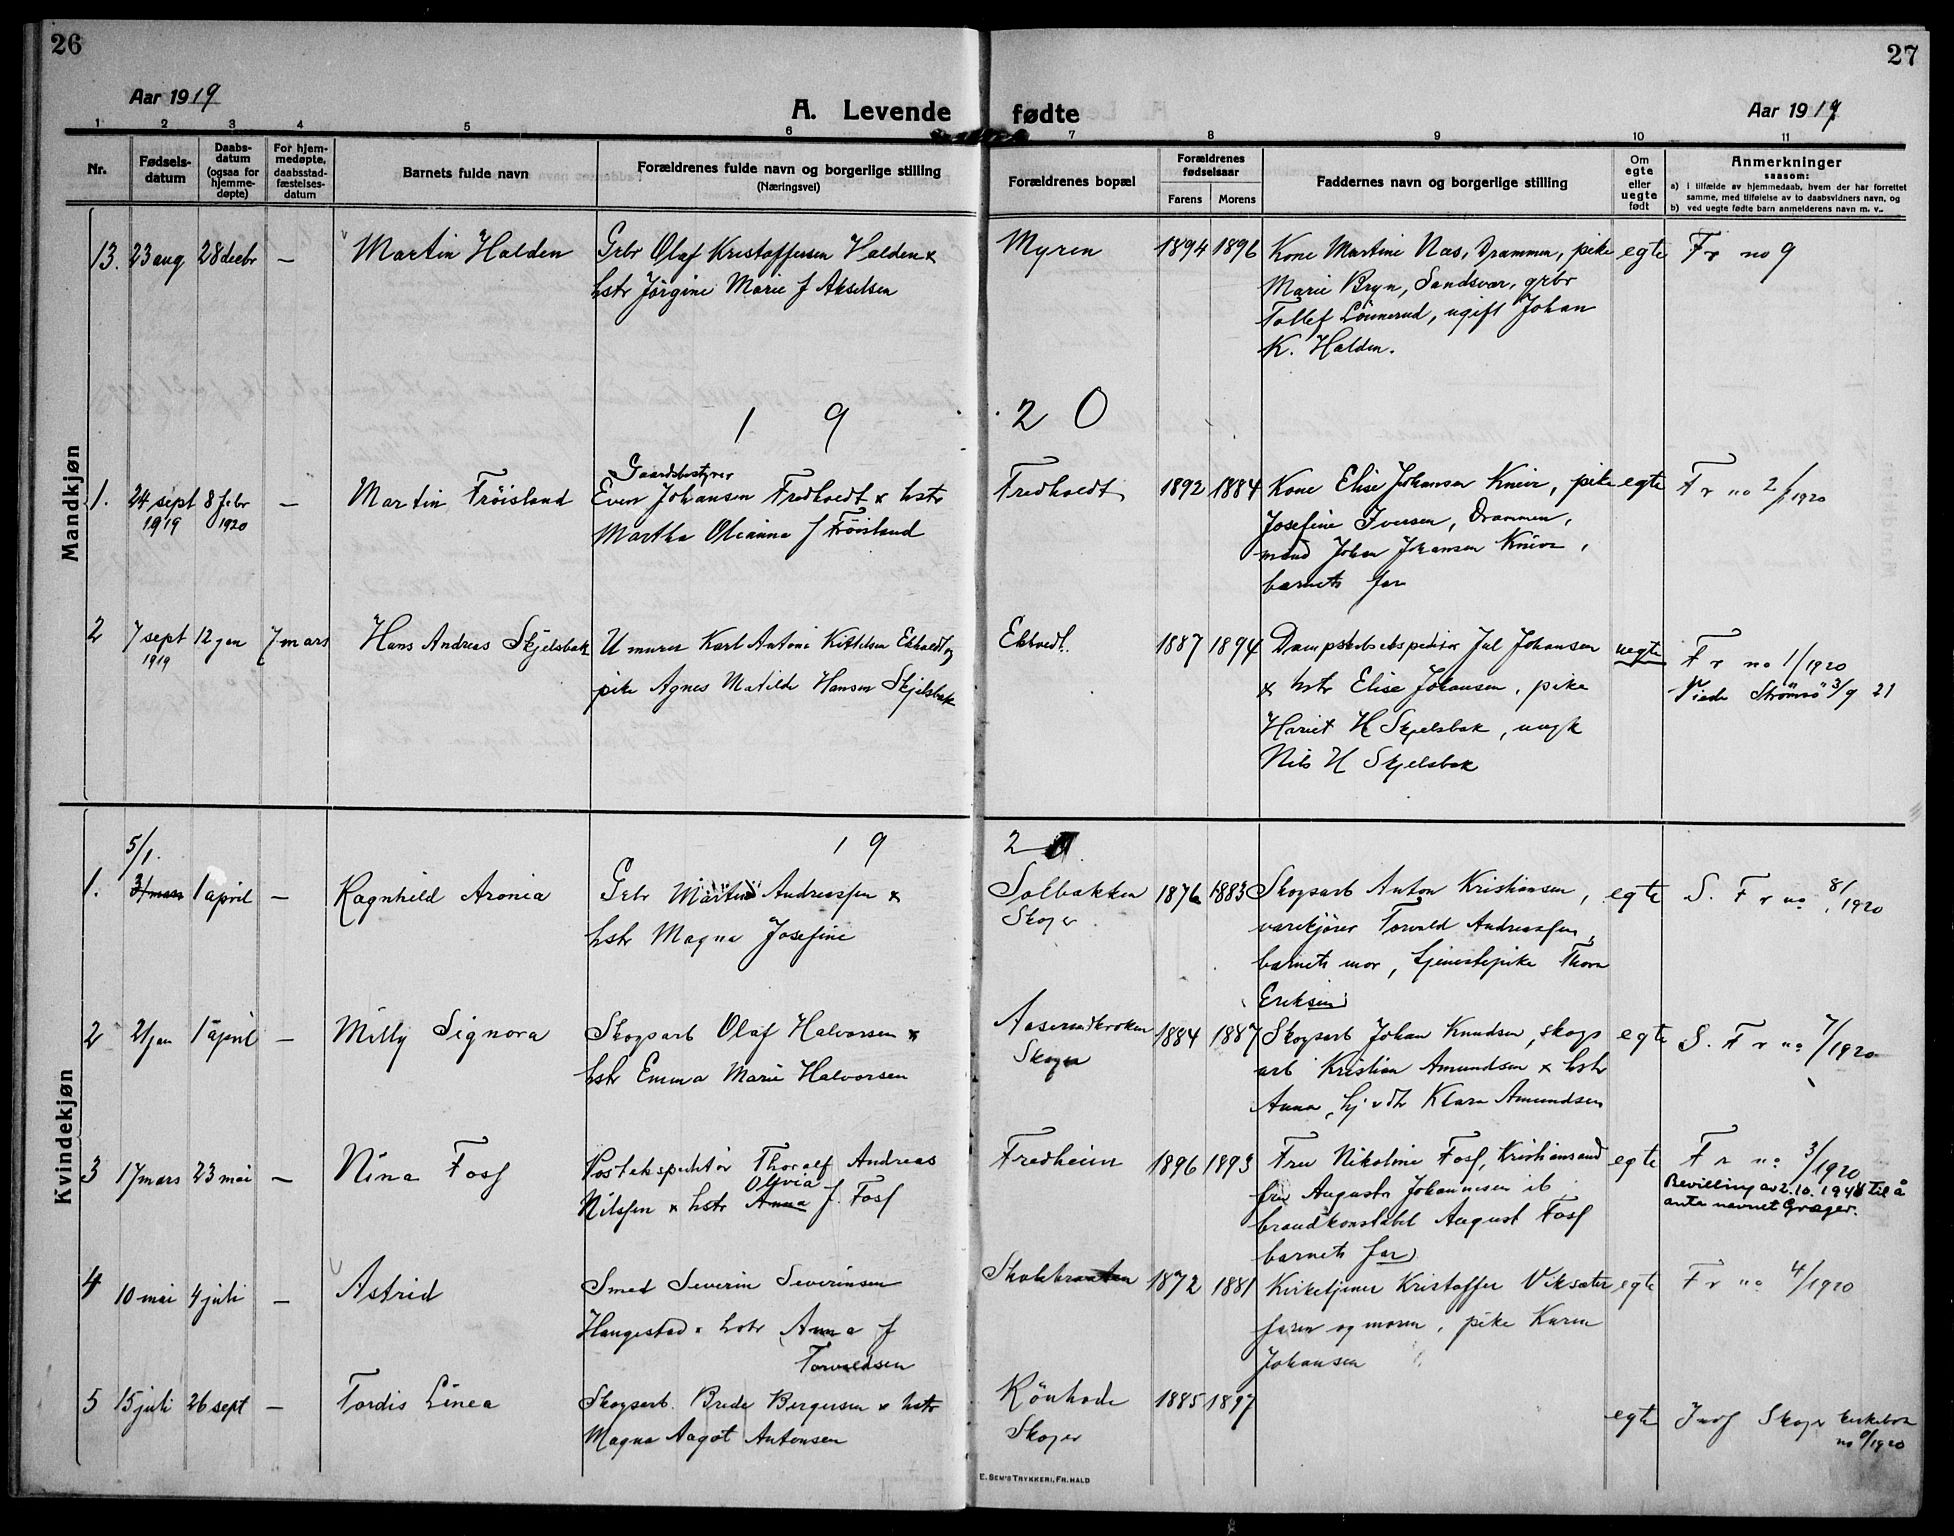 26
27
Aar 1919
A. Levende
fødte
Aar 1919
1 2 3 4 5 6 7 8 9 10 11
Nr.
Fødsels-
datum
Daabs-
datum
(ogsaa for
hjemme-
døpte)
For hjem-
medøpte,
daabsstad-
fæstelses-
datum
Barnets fulde navn
Forældrenes fulde navn og borgerlige stilling
(Næringsvei)
Forældrenes bopæl
Forældrenes
fødselsaar
Farens Morens
Faddernes navn og borgerlige stilling
Om
egte
eller
uegte
født
Anmerkninger
saasom:
a) i tilfælde av hjemmedaab, hvem der har forrettet
samme, med tilføielse av to daabsvidners navn, og
b) ved uegte fødte barn anmelderens navn m. v..
Mandkjøn
13. 23 aug 28 decbr — Martin Halden
Grbr Olaf Kristoffersen Halden &
hstr Jörgine Marie f Akselsen
Myren 1894 1896
Kone Martine Næs, Drammen, pike
Marie Bryn, Sandsvær, grbr
Tollef Lönnerud, ugift Johan
K. Halden.
egte Fr no 9
1 9 2 0
1. 24 sept 8 febr — Martin Tröisland
1919 1920
Gaardsbestyrer
Even Johansen Fredhvedt & hstr
Martha Olianna f Tröisland
Fredhvedt 1892 1884
Kone Elise Johansen Knive, pike
Josefine Iversen, Drammen,
mand Johan Johansen Knive,
barnets far
egte Fr no 2/1920
2 7 sept 12 jan 7 mars Hans Andreas Skjelsbæk
1919
U murer Karl Antone Kittelsen Ekhvedt og
pike Agnes Matilde Hansen Skjelsbæk
Ekhvedt. 1887 1894
Dampskibsekspeditör Jul Johansen
& hstr Elise Johansen, pike
Harriet H Skjelsbæk, ungk
Nils H Skjelsbæk
uegte Fr no 1/1920
Viede Strömsö 3/9 21
Kvindekjøn
1 9 2
5/1.
1. 1 april — Ragnhild Aronia
Grbr Andreassen &
hstr Magna Josefine
Solbakken 1876 1883
Skoger
Skogsarb Anton Kristiansen,
varekjörer Torvald Andreassen,
barnets mor, tjenestepike Thora
Eriksen
egte S. Fr no 8/1920
2 21 jan 1 april — Milly Signora
Skogsarb Olaf Halvorsen &
hstr Emma Marie Halvorsen
1884 1887
Skoger
Skogsarb Johan Knudsen, skogs
arb Kristian Amundsen & hstr
Anna, hj v dtr Klara Amundsen
egte S. Fr no 7/1920
3 17 mars 23 mai — Nina Foss
Postekspeditör Thoralf Andreas
Olivia
Nilssen & hstr Anna f. Foss
Fredheim 1896 1893
Fru Nikoline Foss, Kristiansand
fru Augusta Johannesen ib
brandkonstabel August Foss
barnets far
egte Fr no 3/1920
Bevilling av 2.10.1944 til å
anta navnet Græger.
4 10 mai 4 juli — Astrid
Smed Severin Severinsen
Haugestad & hstr Anna f
Torvaldsen
Skolebraaten 1872 1881
Kirketjener Kristoffer Viksæter
faren og moren, pike Karen
Johansen
egte Fr no 4/1920
5 15 juli 26 sept — Tordis Linea
Skogsarb. Brede Bergersen & hstr
Magna Aagot Antonsen
Skoger 1885 1897
egte Indf Skoger kirkebok
E. SEM'S TRYKKERI, FR.HALD